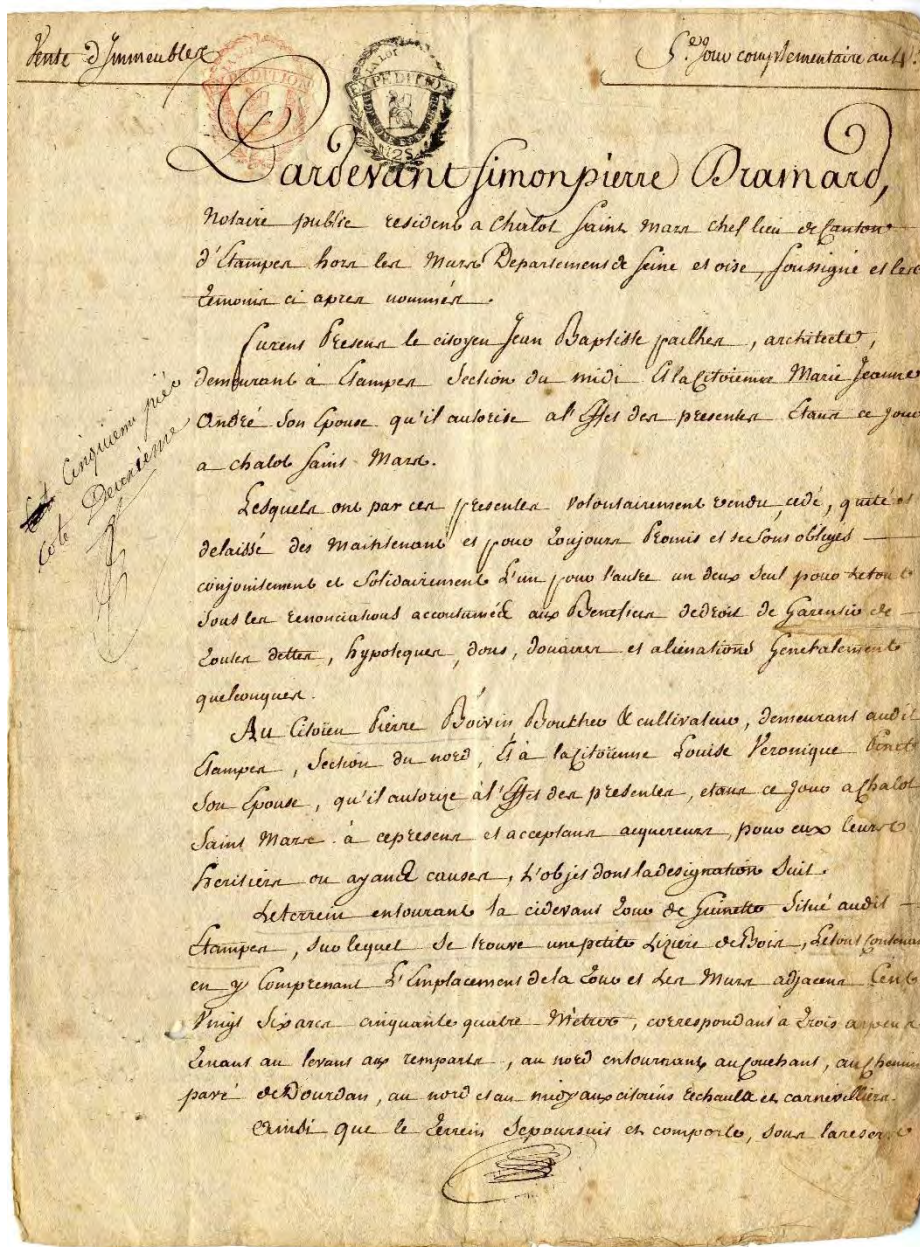 Vente d'Immeubles
5e. Jour complementaire an 4.
LA LOI
EXPEDITION
LA LOI
EXPEDITION
125
Pardevant Simon pierre Dramard,
Notaire public resident a Chalot Saint Mars chef lieu de Canton
d'Etampes hors les Murs Departement de Seine et oise, soussigné et les
temoins ci apres nommés.
furent Presens le citoyen Jean Baptiste pailhes, architecte,
demeurant à Etampes Section du midi Et la Citoienne Marie Jeanne
André Son Epouse qu'il autorise a l'Effet des presentes Etans ce jour
a chalot Saint-Mars.
Cinquieme piece
Cote Deuxieme
Lesquels ont par ces presentes volontairement vendu, cedé, quité et
delaissé dès Maintenant et pour toujours Promis et se sont obligés
conjointement et Solidairement L'un pour l'autre un deux seul pour le tout
Sous les renonciations accoutumées aux Benefices de droit de Garentir de
toutes dettes, hypoteques, dons, douaires et alienations Generalement
quelconques.
Au Citoïen Pierre Boivin Bouthe & cultivateur, demeurant audit
Etampes, Section du nord, Et à la Citoïenne Louise Veronique
Son Epouse, qu'il autorize à l'Effet des presentes, etans ce jour a Chalot
Saint Mars à ce presens et acceptans acquereurs, pour eux leurs
heritiers ou ayans causes, L'objet dont la designation Suit.
Le terrein entourant la cidevant tour de Guinette Situé audit
Etampes, sur lequel se trouve une petite Liziere de Bois, Le tout Contenant
en y Comprenant L'Emplacement de la tour et des Murs adjacens Cent
Vingt Six ares cinquante quatre Metres, correspondans à trois arpens
tenans au levant aux remparts, au nord en tournant au Couchant, au Chemin
pavé de Dourdan, au nord et au midy aux citoiens Echault et carnevilliers.
Ainsi que le terrein Se poursuit et comporte, sous la reserve